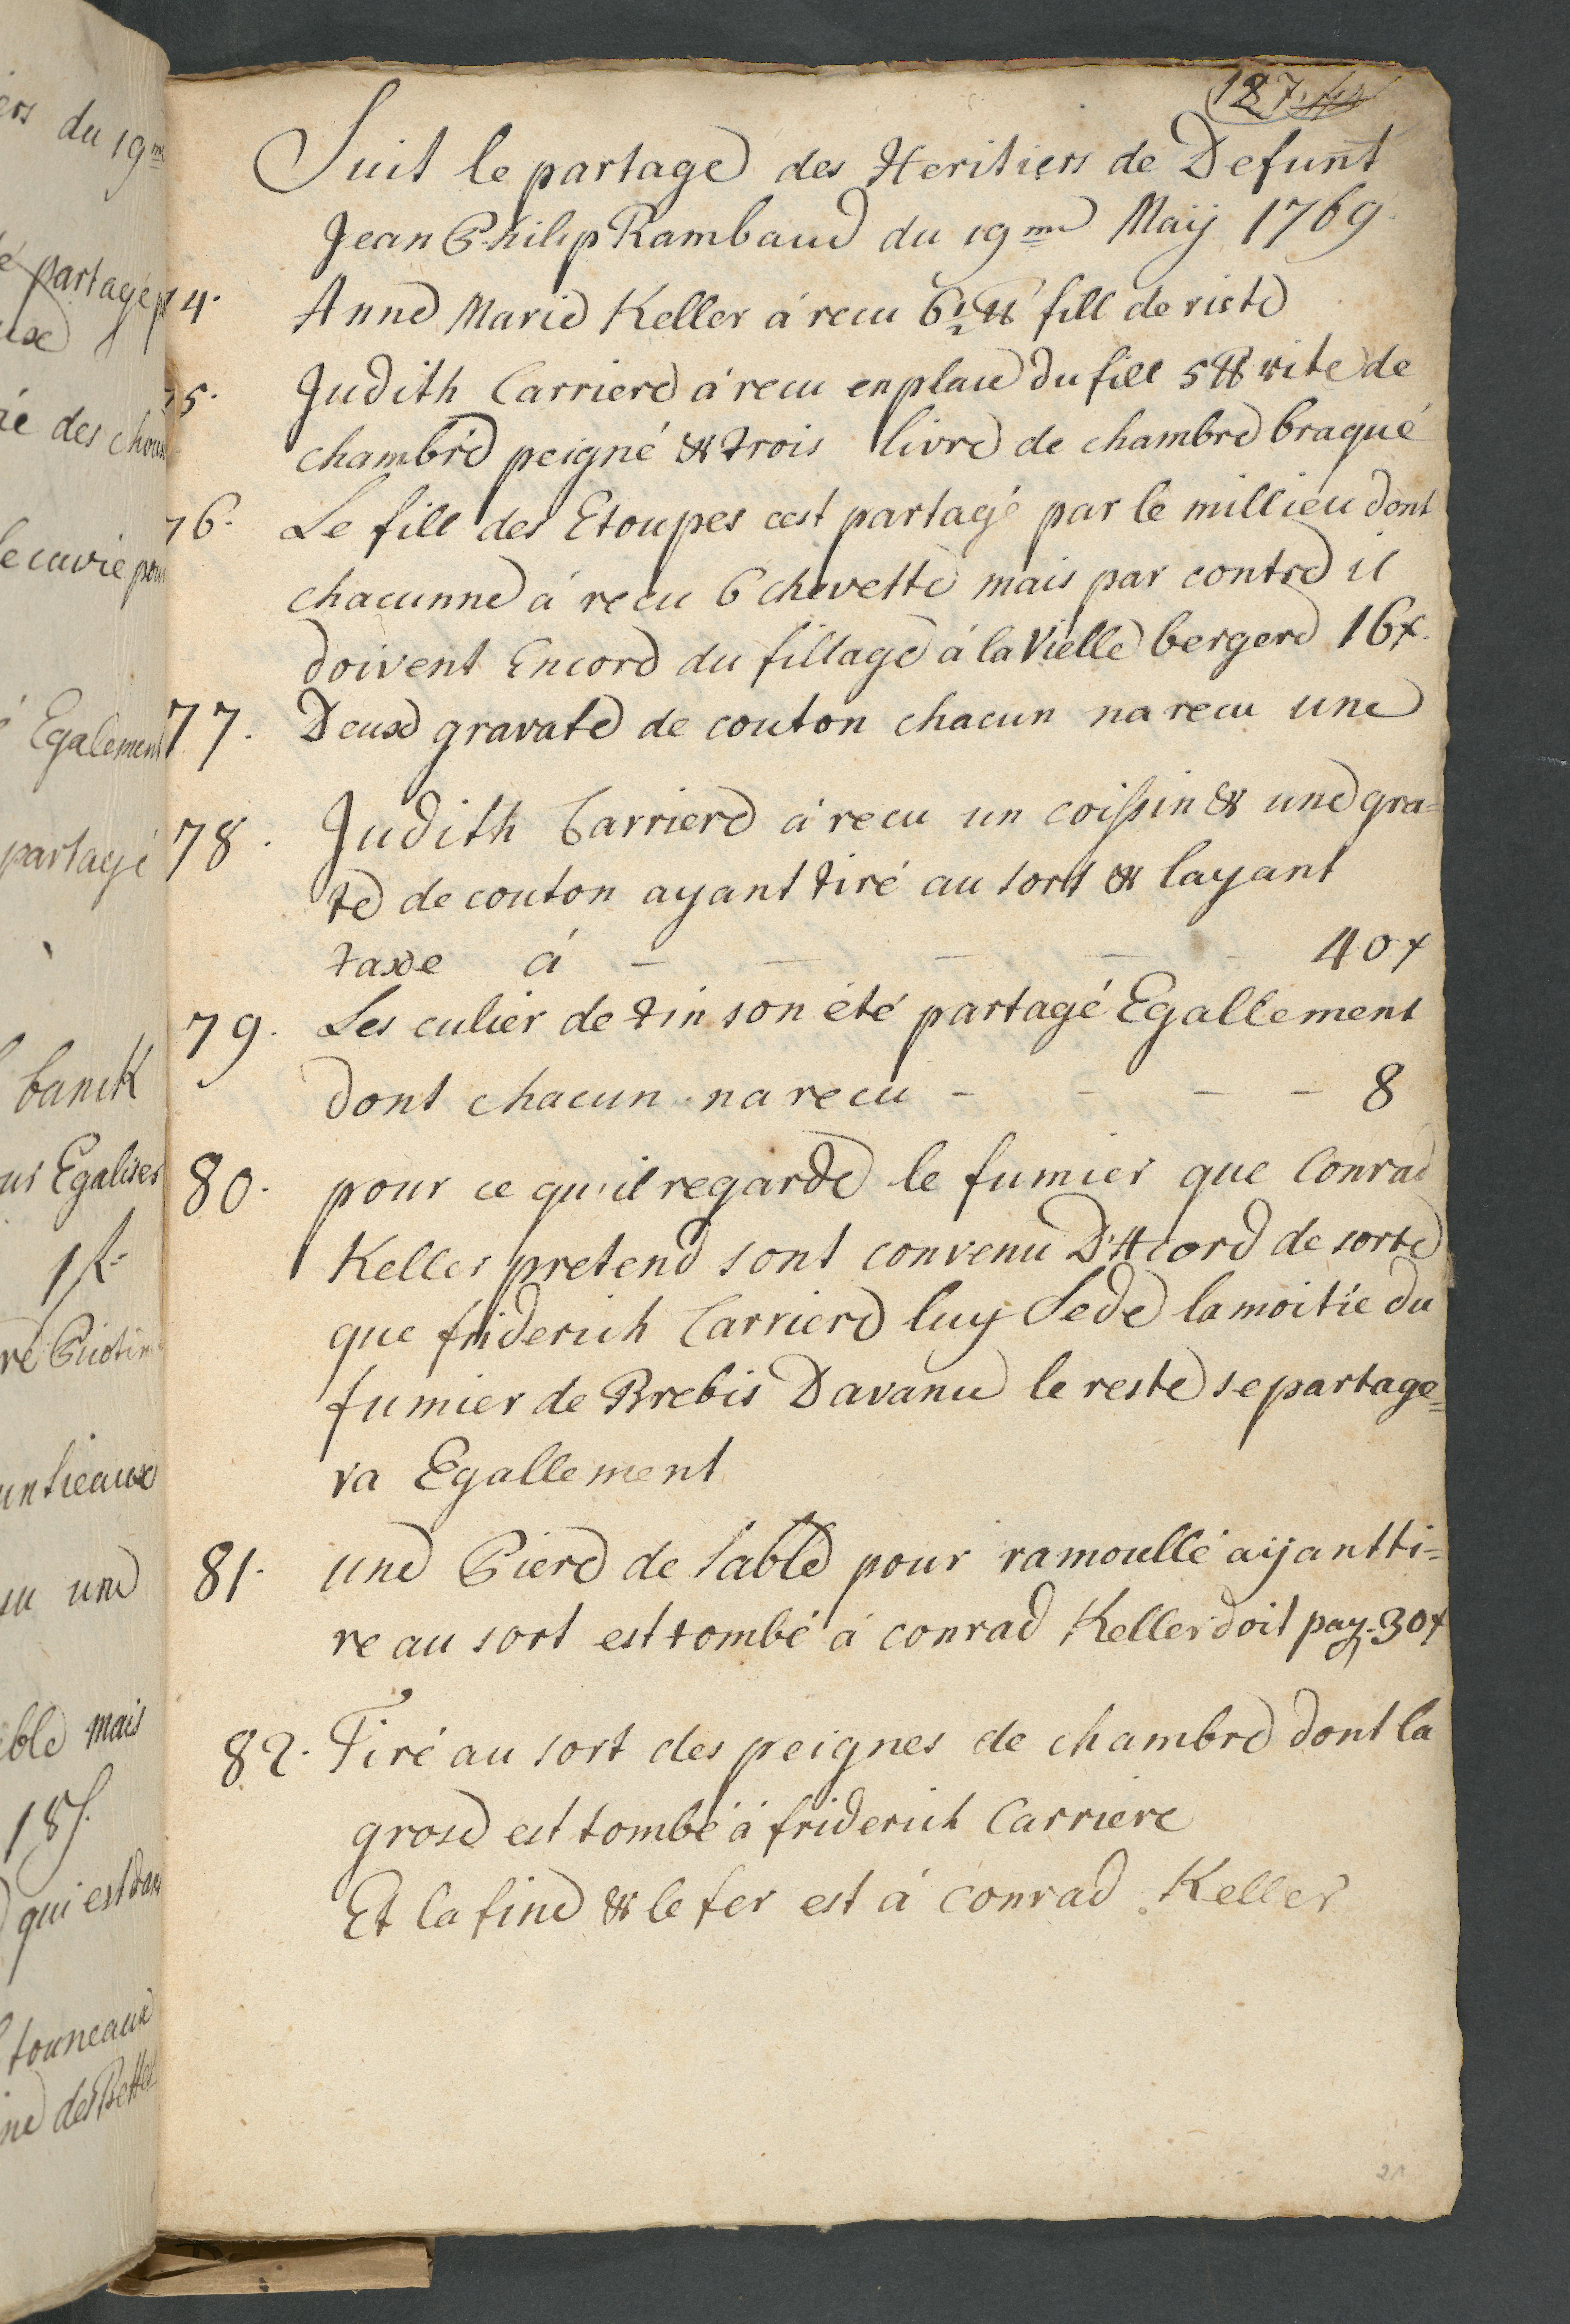 127.
Suit le partage des Heritiers de Defunt
Jean Philip Rambaud du 19me Maÿ 1769.
74. Anne Marie Keller á recu 6½ ℔ fill de riste
75. Judith Carriere á recu en place du fill 5 ℔ rite de
chambre peigné & trois livre de chambre braqué
76. Le fill des Etoupes cest partagé par le millieu dont
chacunne á recu 6 chevette mais par contre il
doivent Encore du fillage á la Vielle bergere 16x.
77. Deuxe gravate de couton chacun na recu une
78. Judith Carriere á recu un coissin & une gra=
te de couton ayant tiré au sort & layant
taxe á — — — — — 40x
79. Les culier de tin son été partagé Egallement
dont chacun na recu — — — — 8
80. pour ce qu'il regarde le fumier que Conrad
Keller pretend sont convenu D'Acord de sorte
que friderich Carriere luy Sede la moitie du
fumier de Brebis Davance le reste se partage=
ra Egallement
81. une Piere de Sable pour ramoullé aÿant ti=
re au sort est tombé á conrad Keller doit pay. 30x
82. Tiré au sort des peignes de chambre dont la
grose est tombé á friderich Carriere
Et la fine & le fer est á Conrad Keller
21
du 19me
partagé
des
Egalement
partagé
banck
Egalises
1f.
une
mais
18f.
qui est
touneaux